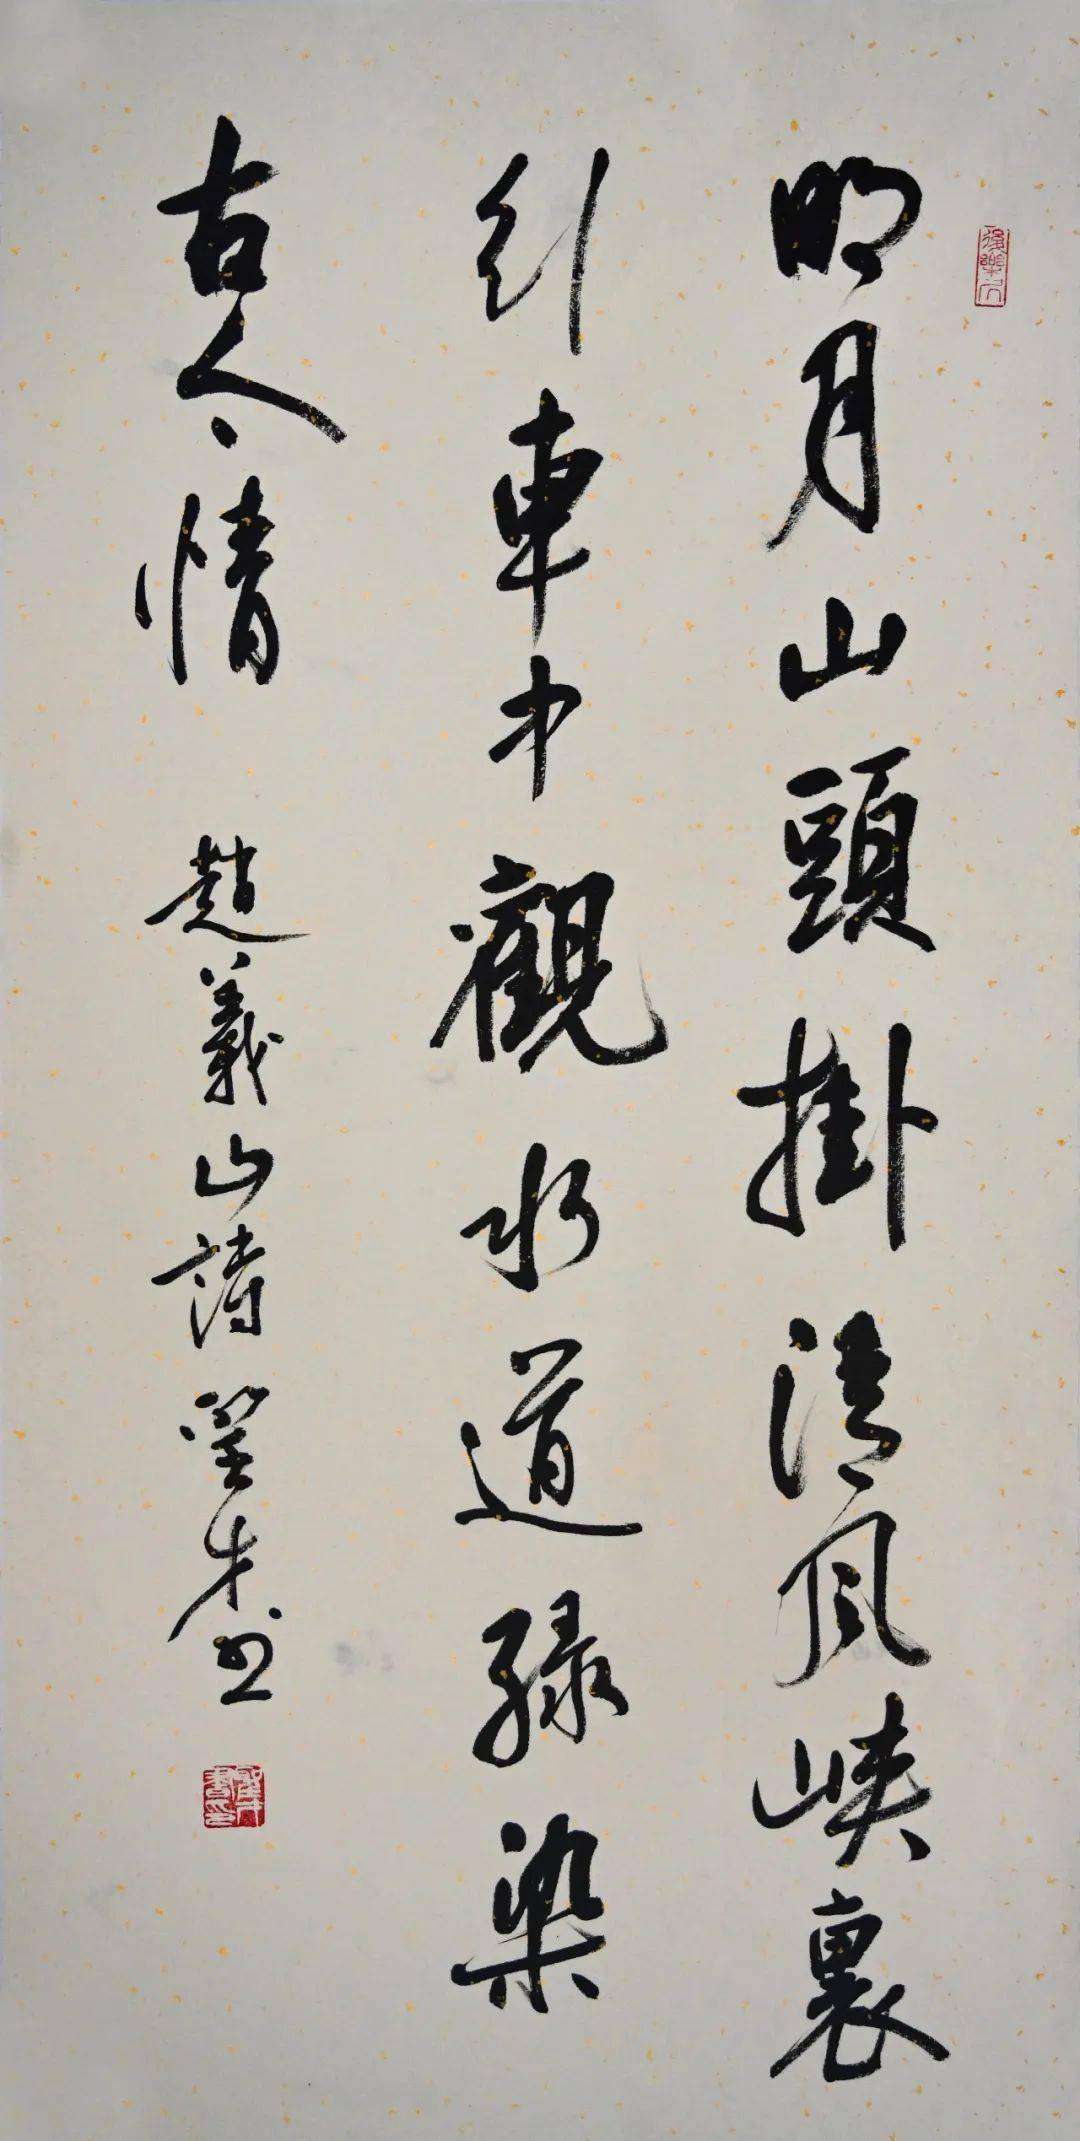 明月山頭掛清風峽裏
引車中觀水道緑染
古人情
趙義山詩 才書